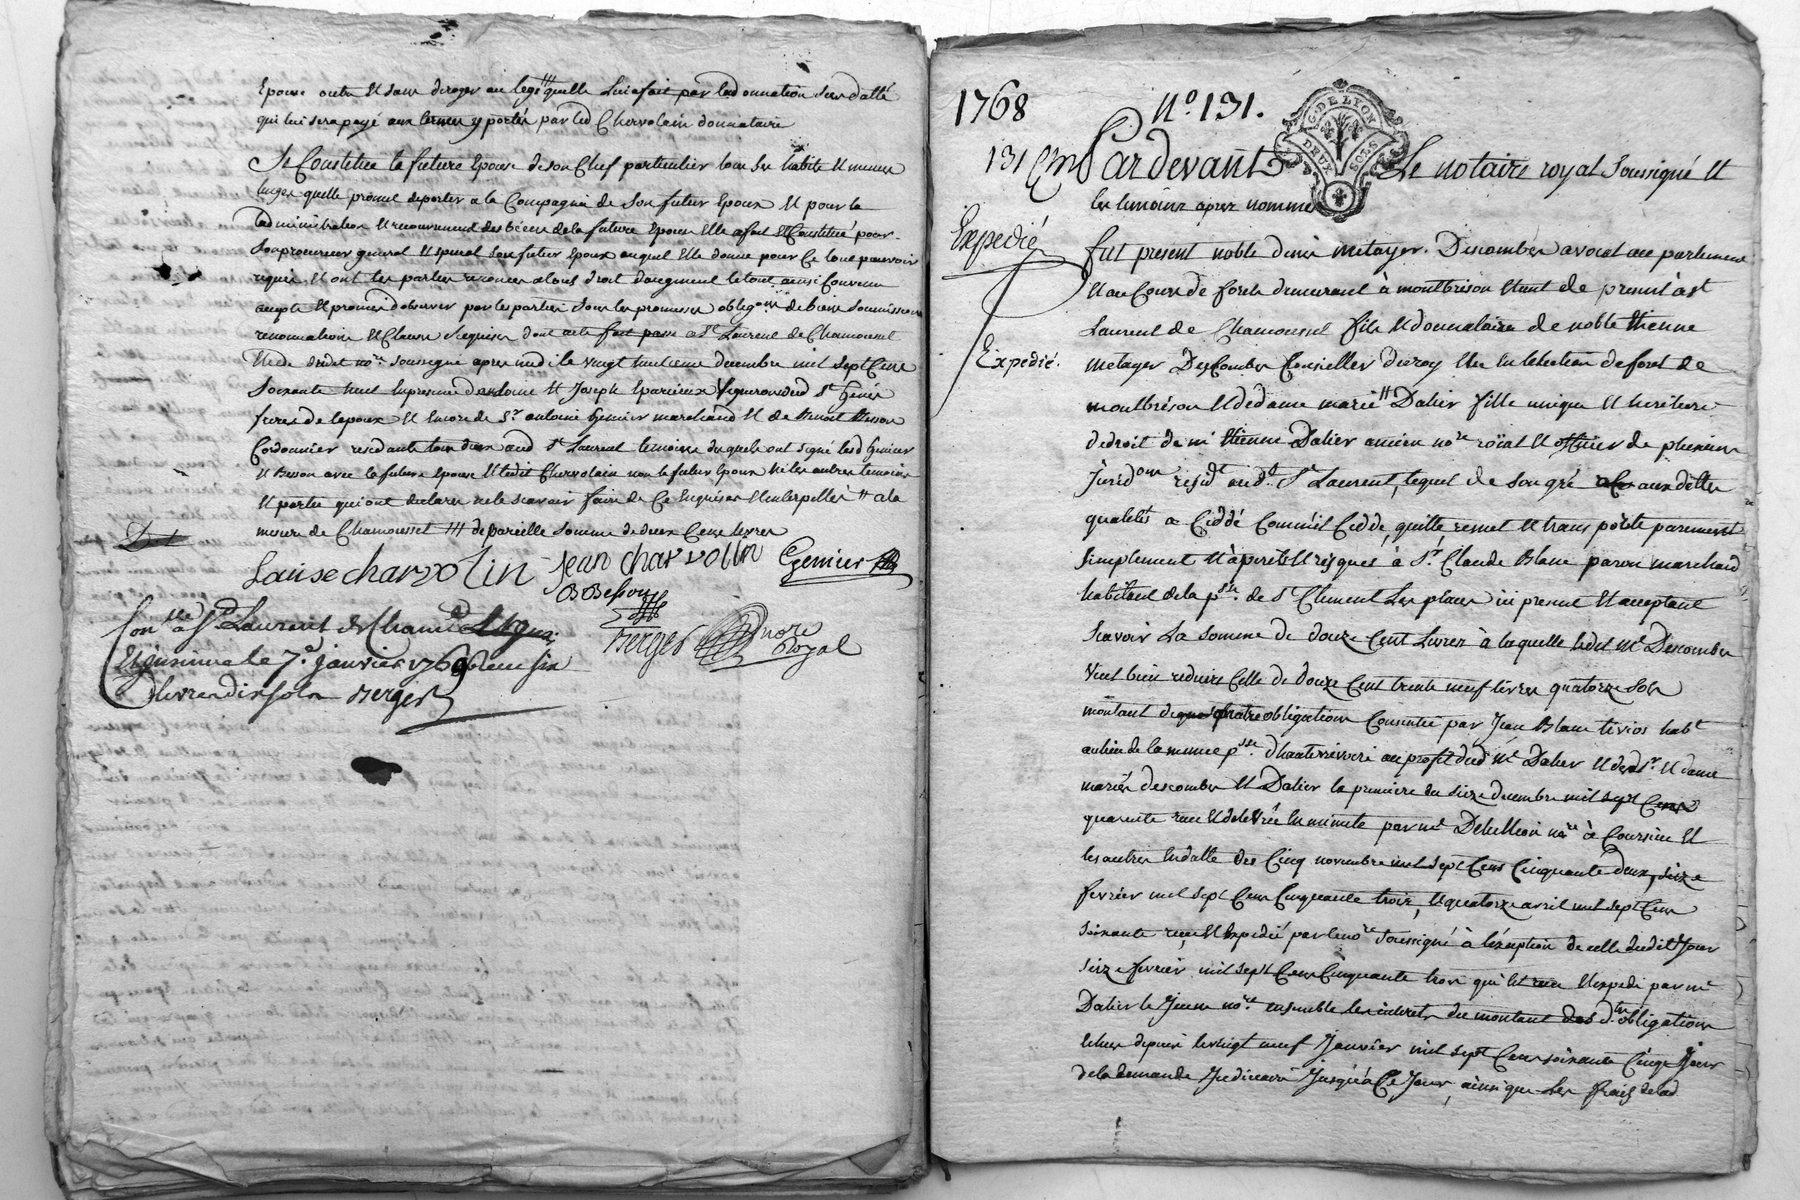 Epouse outre et sans deroger au legs /// quelle luÿ a fait par la donnation susdatté
qui lui sera payé aux termes y portés par led Chervolain donnataire
Se Constitue la future Epouse de son Chef particulier tous ses habits et menus
linges quelle promet de porter a la Compagnie de son futur Epoux et pour la
ladministration et recouvrement des biens de la future Epouse Elle a fait et Constitué pour
son procureur general et special son futur Epoux auquel Elle donne pour Ce tout pouvoir
requis, et ont les parties renoncé a tous droit daugment le tout ainsi Convenu
accepté et promis dobserver par les parties sous les promesses obligons de biens soumissions
renonciations et Clauses Requises dont acte fait passé a St Laurent de Chamousset
Etude dudit nore soussigné apres midi le vingt huitieme decembre mil sept Cens
soixante huit En presence d et Joseph Vigneron dud St Genis
freres de lepoux et Encore de Sr antoine Genier marchand et de Benoit Besson
Cordonnier residants tous deux aud St Laurent temoins desquels ont signé lesd Genier
et Besson avec la future epouse et ledit Chervolain non le futur Epoux ni les autres temoins
et parties qui ont declaré ne le scavoir faire de Ce Enquises et interpellés // a la
mesure de Chamousset /// de pareille somme de deux Cens livres
Louise charvolin Jean Charvolin Genier
B Besson
Berger nore Royal
Con.llé a St Laurent de Chamet
Et insinué le 7.e janvier 1769 Receu six
livres dix sols Berger
1768 No. 131.
G. DE LYON
DEUX SOLS
131 Em Pardevant Le notaire royal soussigné et
les temoins apres nommés
Expedié
fut present noble denis metayer Descombes avocat au parlement
et au Cours de forets demeurant à montbrison etant de present à St
Laurent de Chamousset fils et donnataire de noble Etienne
Expedié.
metayer DesCombes Conseiller du roy Elu En lelection de forest de
montbrison et de dame marie // Dalier fille unique et heritiere
de droit de me Etienne Dalier ancien nore roïal et officier de plusieurs
Juridons residt aud. St Laurent, lequel de son gré aux dittes
qualités a Ceddé Comm'il Cedde, quitte, remet et transporte purement
simplement et à perils et risques à Sr. Claude Blanc marchand
habitant de la psse. de St Clement Les places ici present et acceptant
scavoir La somme de douze Cent Livres à laquelle ledit Me Descombes
Veut bien reduire Celle de douze Cent trente neuf livres quatorze sols
montant de quatre obligations Consentie par Jean Blanc habt
au lieu de la meme psse. d'hauterivoire au profit dud Me Dalier et desd Sr. et dame
mariés descombes et Dalier la premiere du seize decembre mil sept Cens
quarente receu et delivrée En minute par me Debellion nore à Coursieu et
les autres En datte des Cinq novembre mil sept Cens Cinquante deux, seize
fevrier mil sept Cens Cinquante trois, et quatorze avril mil sept Cens
soixante receu et Expedié par le nore soussigné à léxeption de celle dudit Jour
seize fevrier mil sept Cens Cinquante trois qui est receu et Expedié par me
Dalier le Jeune nore. ensemble les interets du montant des d.tes obligations
Echus depuis le vingt neuf Janvier mil sept Cens soixante Cinq Jour
de la demande Judiciaire Jusqu'à Ce Jour, ainsi que les fraix de lad